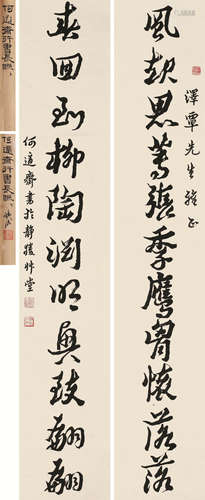 澤覃先生雅正
風起思蓴張季鷹胷懷落落
春回到柳陶淵明興致翩翩
何適齋書於靜勝草堂
何適齋行書長聯
何適齋行書長聯